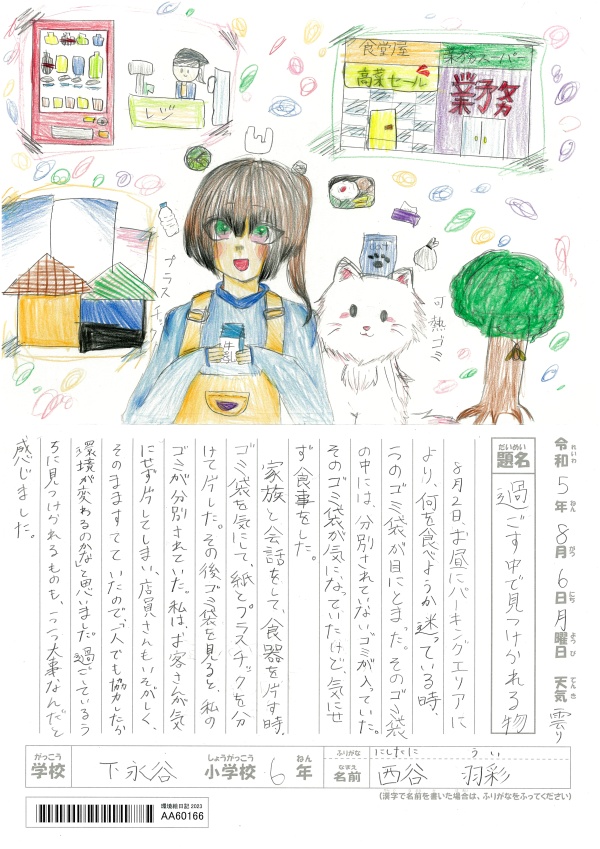 食堂屋
高菜セール
業務スーパー
業務
レジ
プラスチック
牛乳
可熱ゴミ
令和5年8月6日月曜日 天気 曇り
れいわ ねん がつ にち ようび てんき
だいめい
題名
過ごす中で見つけられる物
8月2日、お昼にパーキングエリアに
より、何を食べようか迷っている時、
一つのゴミ袋が目にとまった。そのゴミ袋
の中には、分別されていないゴミが入っていた。
そのゴミ袋が気になっていたけど、気にせ
ず食事をした。
家族と会話をして、食器を片す時、
ゴミ袋を気にして、紙とプラスチックを分
けて片した。その後ゴミ袋を見ると、私の
ゴミが分別されていた。私は、お客さんが気
にせず片してしまい、店員さんもいそがしく、
そのまますてていたので、「一人でも協力したか
環境が変わるのかな」と思いました。過ごしているう
ちに見つけられるものも、一つ一つ大事なんだと
感じました。
がっこう しょうがっこう ねん
学校 下永谷 小学校 6年
ふりがな にしたに うい
なまえ
名前 西谷 羽彩
(漢字で名前を書いた場合は、ふりがなをふってください)
環境絵日記2023
AA60166